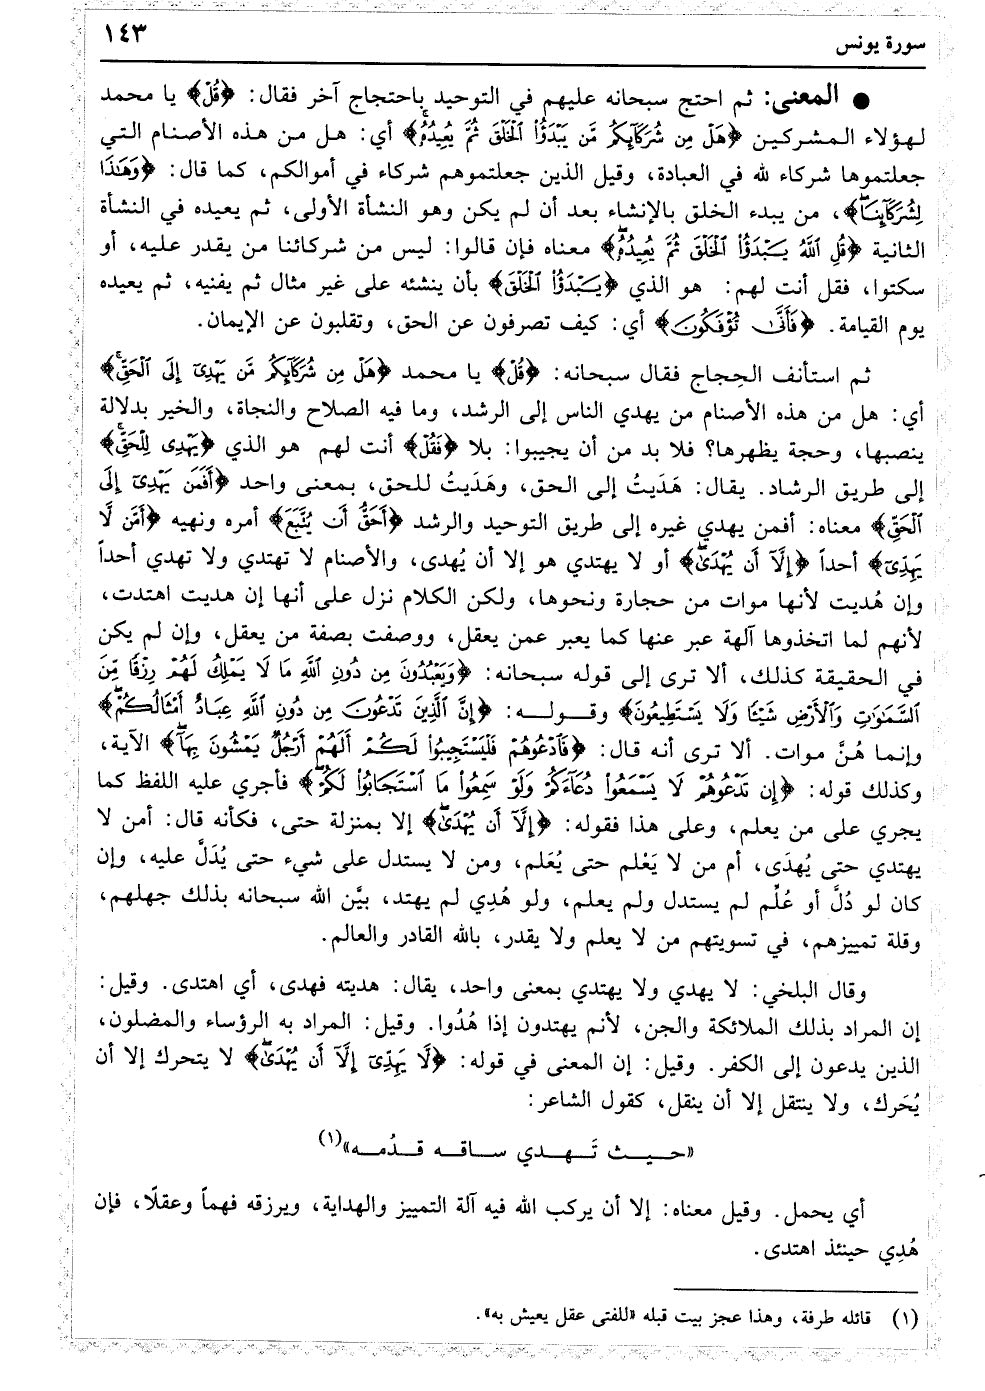 سورة يونس
١٤٣
● المعنى: ثم احتج سبحانه عليهم في التوحيد باحتجاج آخر فقال: ﴿قُلْ﴾ يا محمد
لهؤلاء المشركين ﴿هَلْ مِن شُرَكَآئِكُم مَّن يَبْدَؤُا۟ ٱلْخَلْقَ ثُمَّ يُعِيدُهُۥۚ﴾ أي: هل من هذه الأصنام التي
جعلتموها شركاء لله في العبادة، وقيل الذين جعلتموهم شركاء في أموالكم، كما قال: ﴿وَهَـٰذَا
لِشُرَكَآئِنَاۖ﴾، من يبدء الخلق بالإنشاء بعد أن لم يكن وهو النشأة الأولى، ثم يعيده في النشأة
الثانية ﴿قُلِ ٱللَّهُ يَـبْدَؤُا۟ ٱلْخَلْقَ ثُمَّ يُعِيدُهُۥۖ﴾ معناه فإن قالوا: ليس من شركائنا من يقدر عليه، أو
سكتوا، فقل أنت لهم: هو الذي ﴿يَـبْدَؤُا۟ ٱلْخَلْقَ﴾ بأن ينشئه على غير مثال ثم يفنيه، ثم يعيده
يوم القيامة. ﴿فَأَنَّىٰ تُؤْفَكُونَ﴾ أي: كيف تصرفون عن الحق، وتقلبون عن الإيمان.
ثم استأنف الحِجاج فقال سبحانه: ﴿قُلْ﴾ يا محمد ﴿هَلْ مِن شُرَكَآئِكُم مَّن يَهْدِىٓ إِلَى ٱلْحَقِّۚ﴾
أي: هل من هذه الأصنام من يهدي الناس إلى الرشد، وما فيه الصلاح والنجاة، والخير بدلالة
ينصبها، وحجة يظهرها؟ فلا بد من أن يجيبوا: بلا ﴿فَقُلْ﴾ أنت لهم هو الذي ﴿يَهْدِى لِلْحَقِّۚ﴾
إلى طريق الرشاد. يقال: هَدَيتُ إلى الحق، وهَدَيتُ للحق، بمعنى واحد ﴿أَفَمَن يَهْدِىٓ إِلَى
ٱلْحَقِّ﴾ معناه: أفمن يهدي غيره إلى طريق التوحيد والرشد ﴿أَحَقُّ أَن يُتَّبَعَ﴾ أمره ونهيه ﴿أَمَّن لَّا
يَهِدِّىٓ﴾ أحداً ﴿إِلَّآ أَن يُهْدَىٰۖ﴾ أو لا يهتدي هو إلا أن يُهدى، والأصنام لا تهتدي ولا تهدي أحداً
وإن هُديت لأنها موات من حجارة ونحوها، ولكن الكلام نزل على أنها إن هديت اهتدت،
لأنهم لما اتخذوها آلهة عبر عنها كما يعبر عمن يعقل، ووصفت بصفة من يعقل، وإن لم يكن
في الحقيقة كذلك، ألا ترى إلى قوله سبحانه: ﴿وَيَعْبُدُونَ مِن دُونِ ٱللَّهِ مَا لَا يَمْلِكُ لَهُمْ رِزْقًا مِّنَ
ٱلسَّمَـٰوَٰتِ وَٱلْأَرْضِ شَيْـًٔا وَلَا يَسْتَطِيعُونَ﴾ وقـولـه: ﴿إِنَّ ٱلَّذِينَ تَدْعُونَ مِن دُونِ ٱللَّهِ عِبَادٌ أَمْثَالُكُمْۖ﴾
وإنما هُنَّ موات. ألا ترى أنه قال: ﴿فَٱدْعُوهُمْ فَلْيَسْتَجِيبُوا۟ لَكُمْ أَلَهُمْ أَرْجُلٌ يَمْشُونَ بِهَآۖ﴾ الآية،
وكذلك قوله: ﴿إِن تَدْعُوهُمْ لَا يَسْمَعُوا۟ دُعَآءَكُمْ وَلَوْ سَمِعُوا۟ مَا ٱسْتَجَابُوا۟ لَكُمْۖ﴾ فأجري عليه اللفظ كما
يجري على من يعلم، وعلى هذا فقوله: ﴿إِلَّآ أَن يُهْدَىٰۖ﴾ إلا بمنزلة حتى، فكأنه قال: أمن لا
يهتدي حتى يُهدَى، أم من لا يَعْلم حتى يُعَلم، ومن لا يستدل على شيء حتى يُدَلَّ عليه، وإن
كان لو دُلَّ أو عُلِّم لم يستدل ولم يعلم، ولو هُدِي لم يهتد، بيَّن الله سبحانه بذلك جهلهم،
وقلة تمييزهم، في تسويتهم من لا يعلم ولا يقدر، بالله القادر والعالم.
وقال البلخي: لا يهدي ولا يهتدي بمعنى واحد، يقال: هديته فهدى، أي اهتدى. وقيل:
إن المراد بذلك الملائكة والجن، لأنم يهتدون إذا هُدُوا. وقيل: المراد به الرؤساء والمضلون،
الذين يدعون إلى الكفر. وقيل: إن المعنى في قوله: ﴿لَّا يَهِدِّىٓ إِلَّآ أَن يُهْدَىٰۖ﴾ لا يتحرك إلا أن
يُحَرك، ولا ينتقل إلا أن ينقل، كقول الشاعر:
«حـيـث تَـهـدي سـاقـه قـدُمـه»(١)
أي يحمل. وقيل معناه: إلا أن يركب الله فيه آلة التمييز والهداية، ويرزقه فهماً وعقلًا، فإن
هُدِي حينئذ اهتدى.
(١) قائله طرفة، وهذا عجز بيت قبله «للفتى عقل يعيش به».